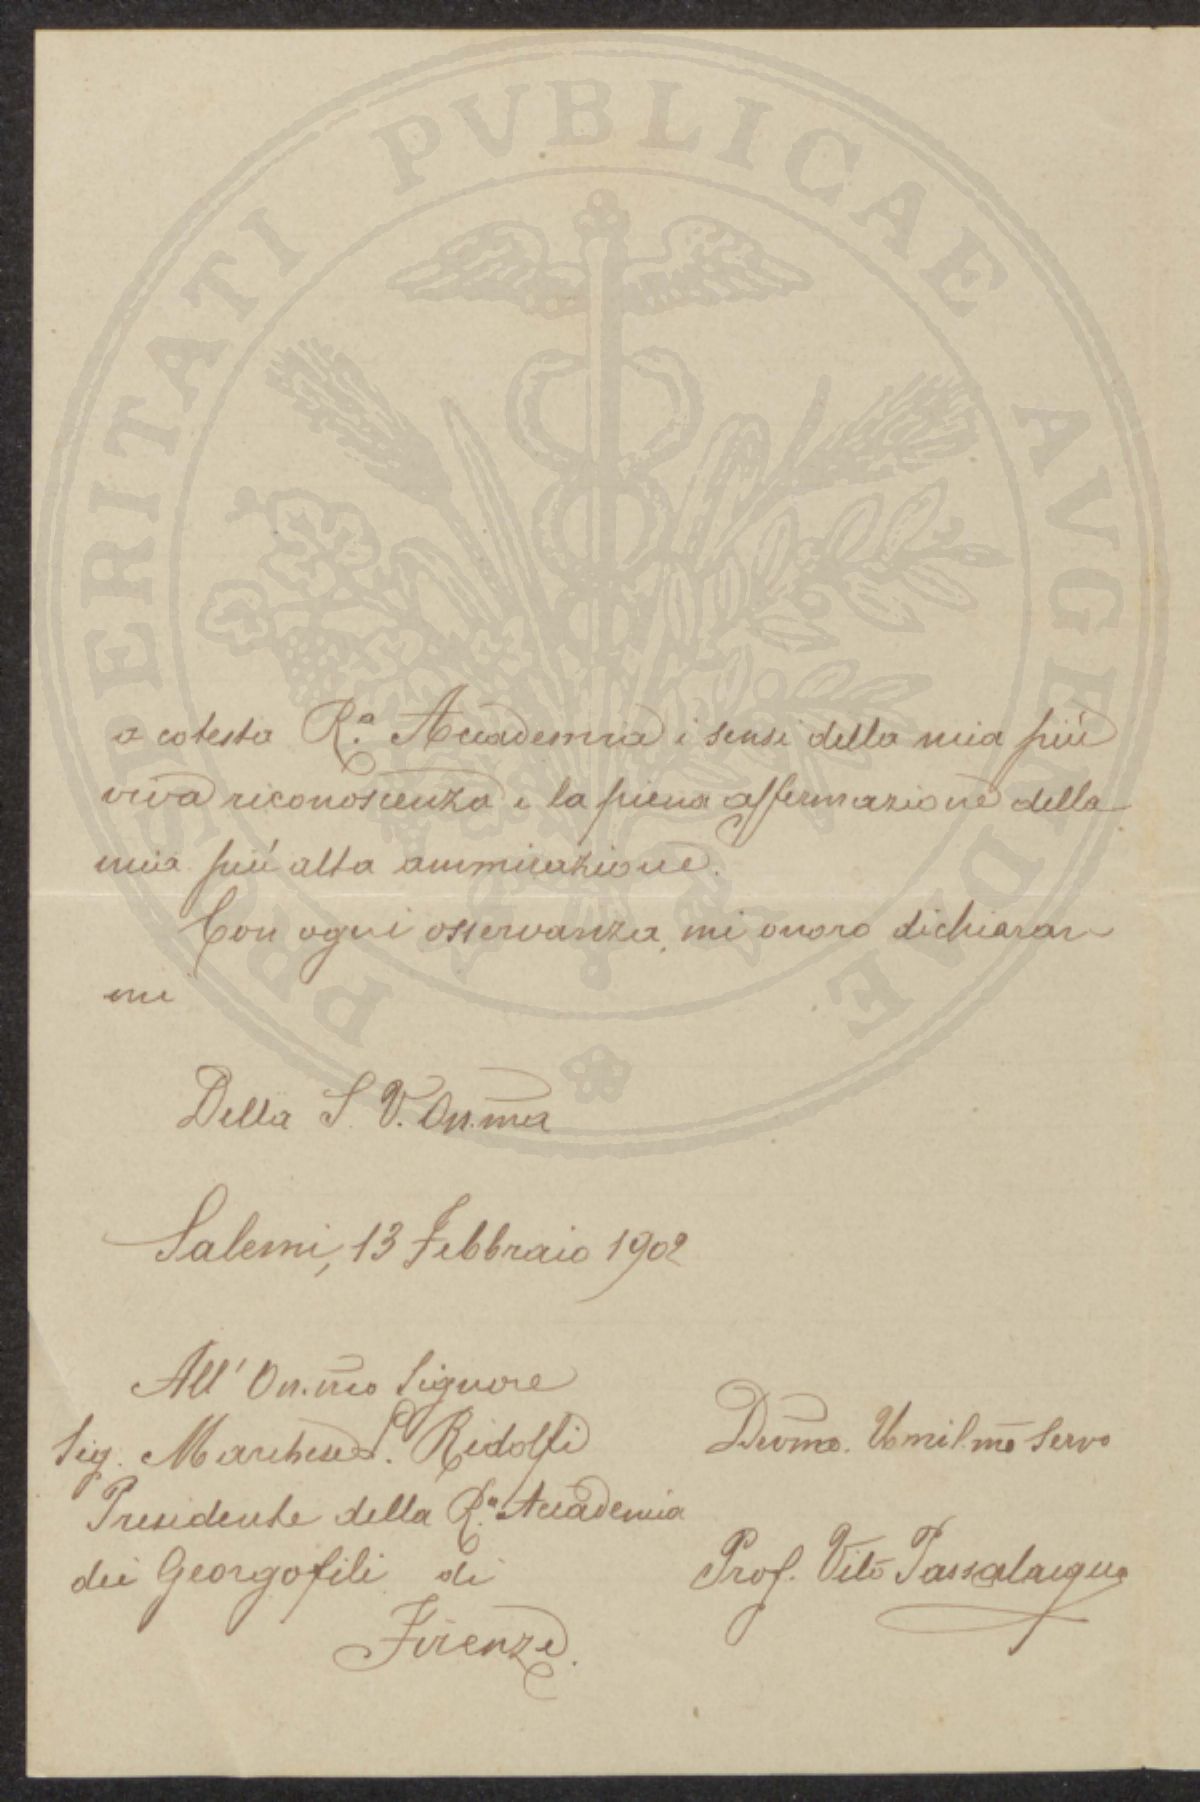 PROSPERITATI PVBLICAE AVGENDAE
a cotesta R.a Accademia i sensi della mia più
viva riconoscenza e la piena affermazione della
mia più alta ammirazione.
Con ogni osservanza, mi onoro dichiarar
mi
Della S. V. On.ma
Salemi, 13 Febbraio 1902
All' On.mo Signore
Sig. Marchese L. Ridolfi
Presidente della R.a Accademia
dei Georgofili di
Firenze.
Devmo. Umil.mo Servo
Prof. Vito Passalacqua